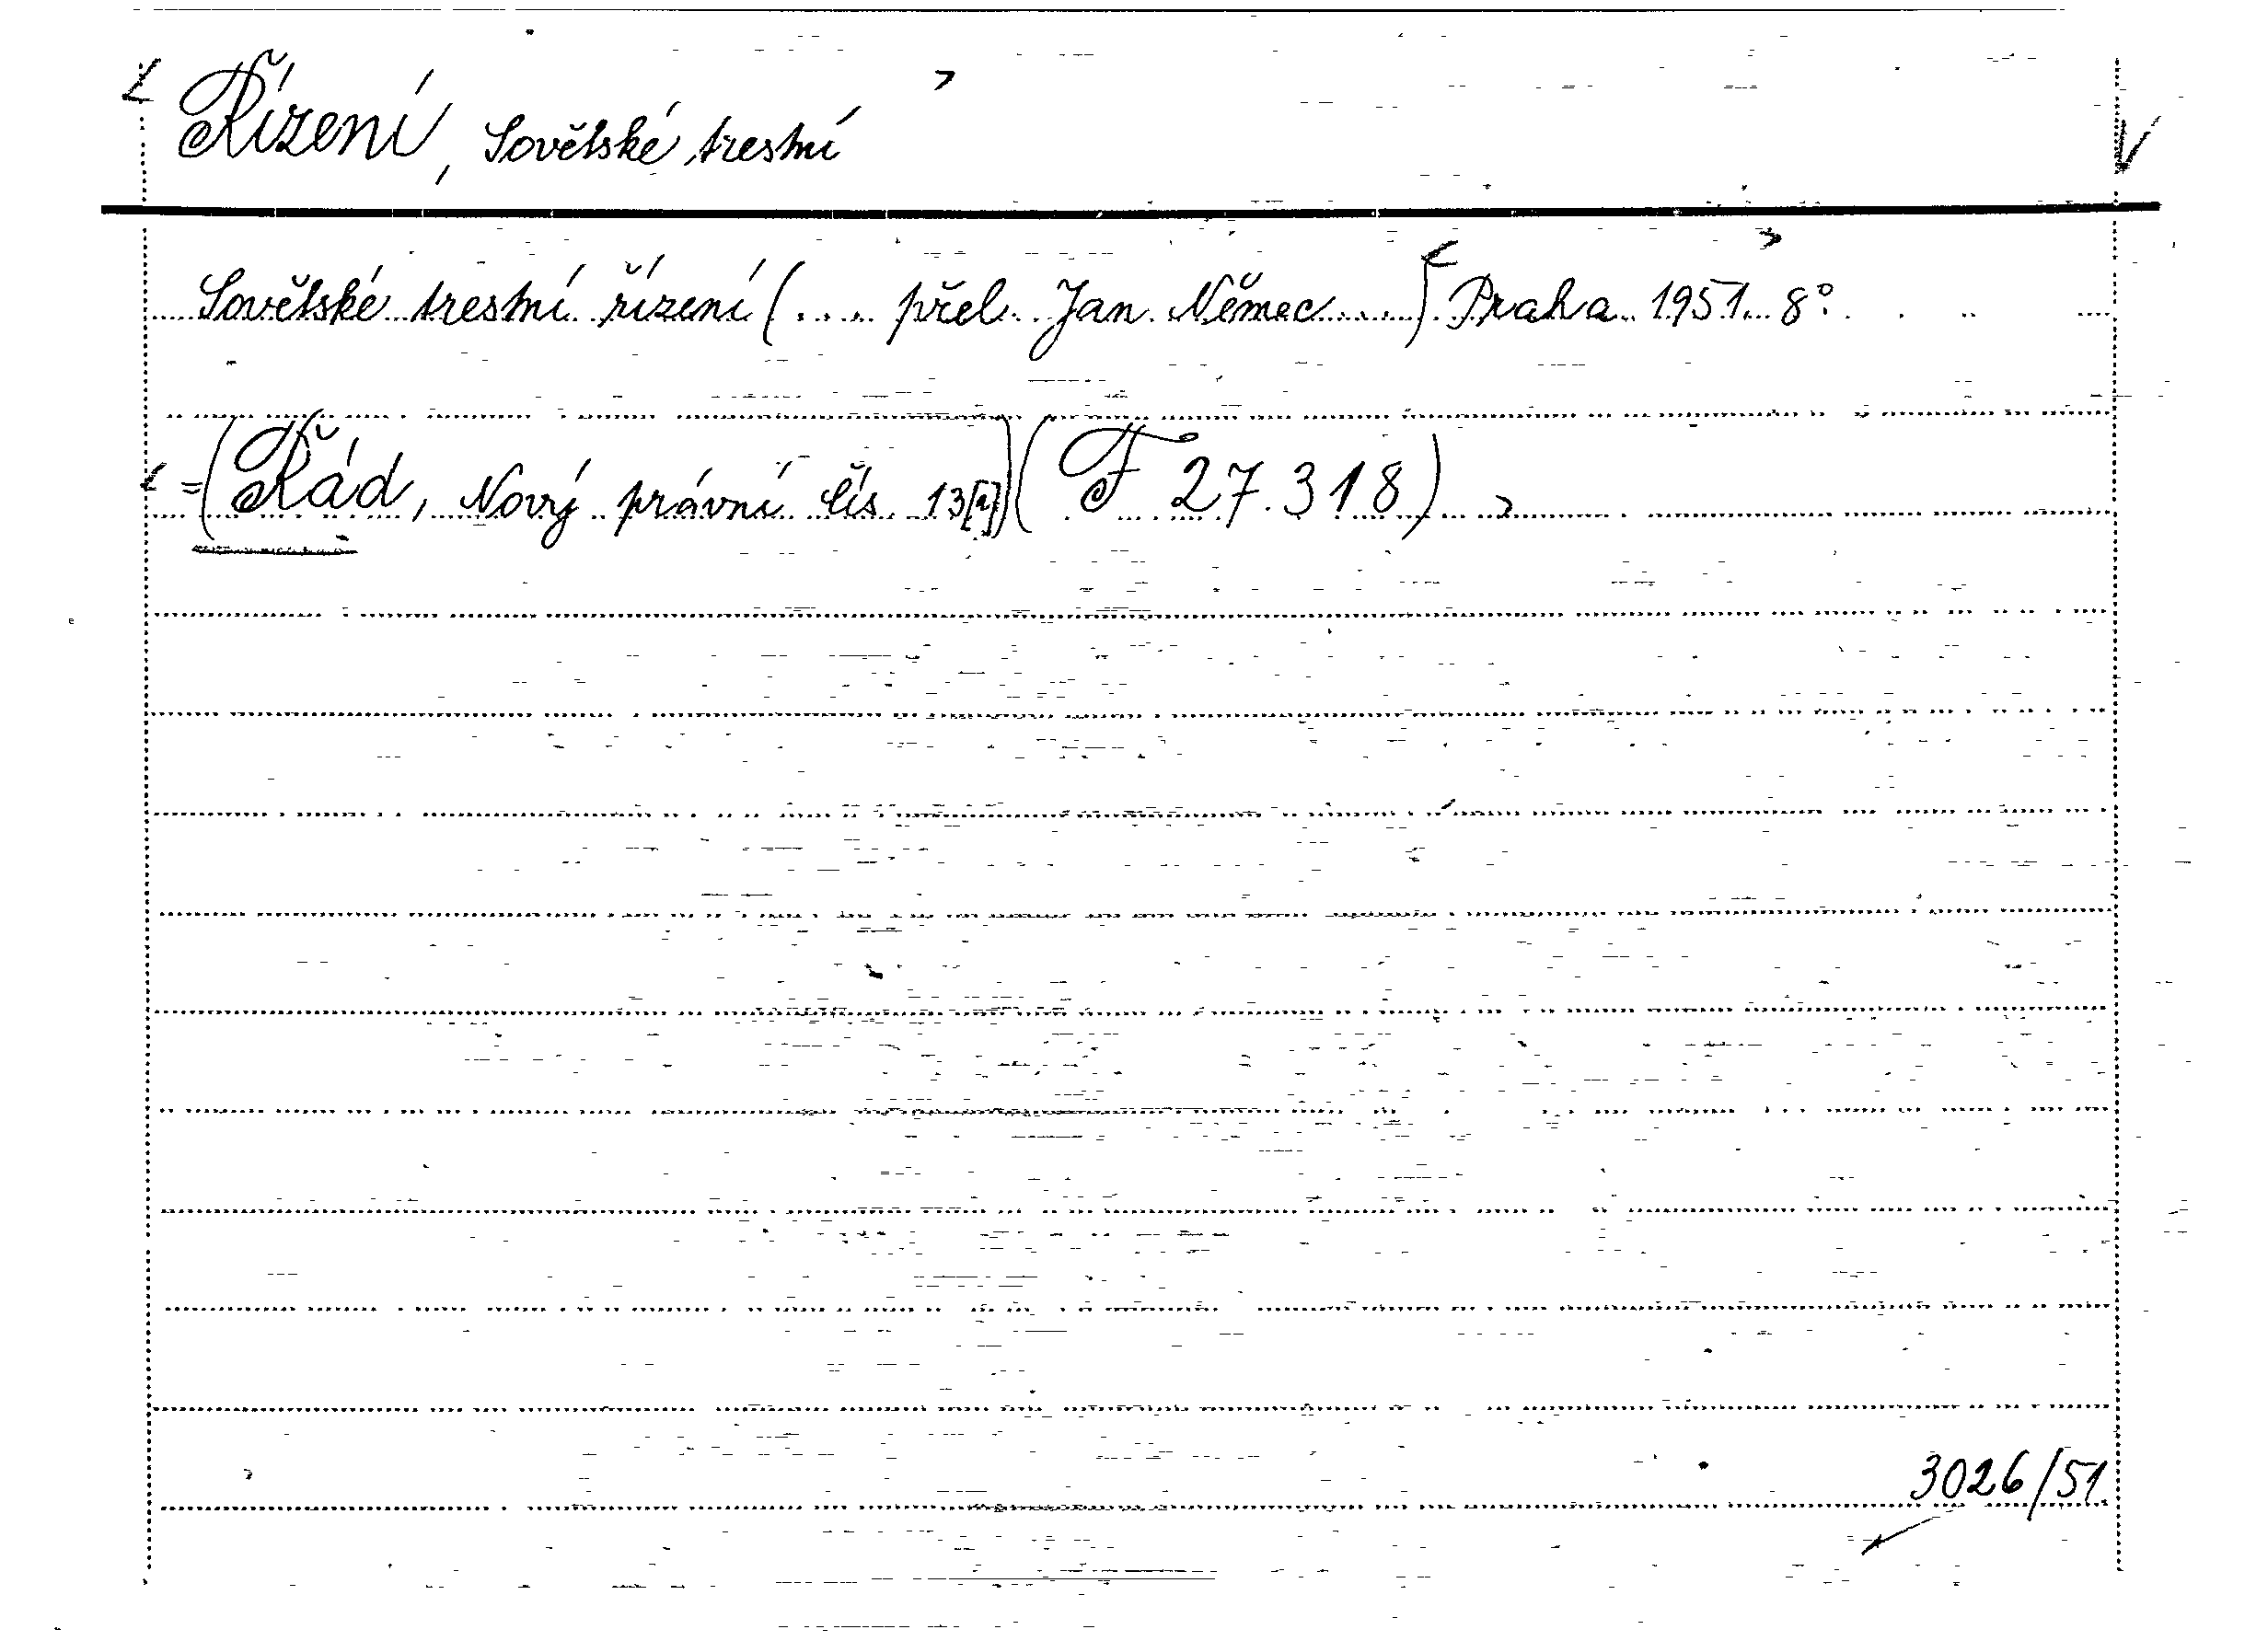 Řízení, Sovětské trestní
Sovětské trestní řízení (.... přel. Jan Němec ....) Praha 1951. 8°.
=(Řád, Nový právní čís. 13[a])(F 27.318)
3026/51.